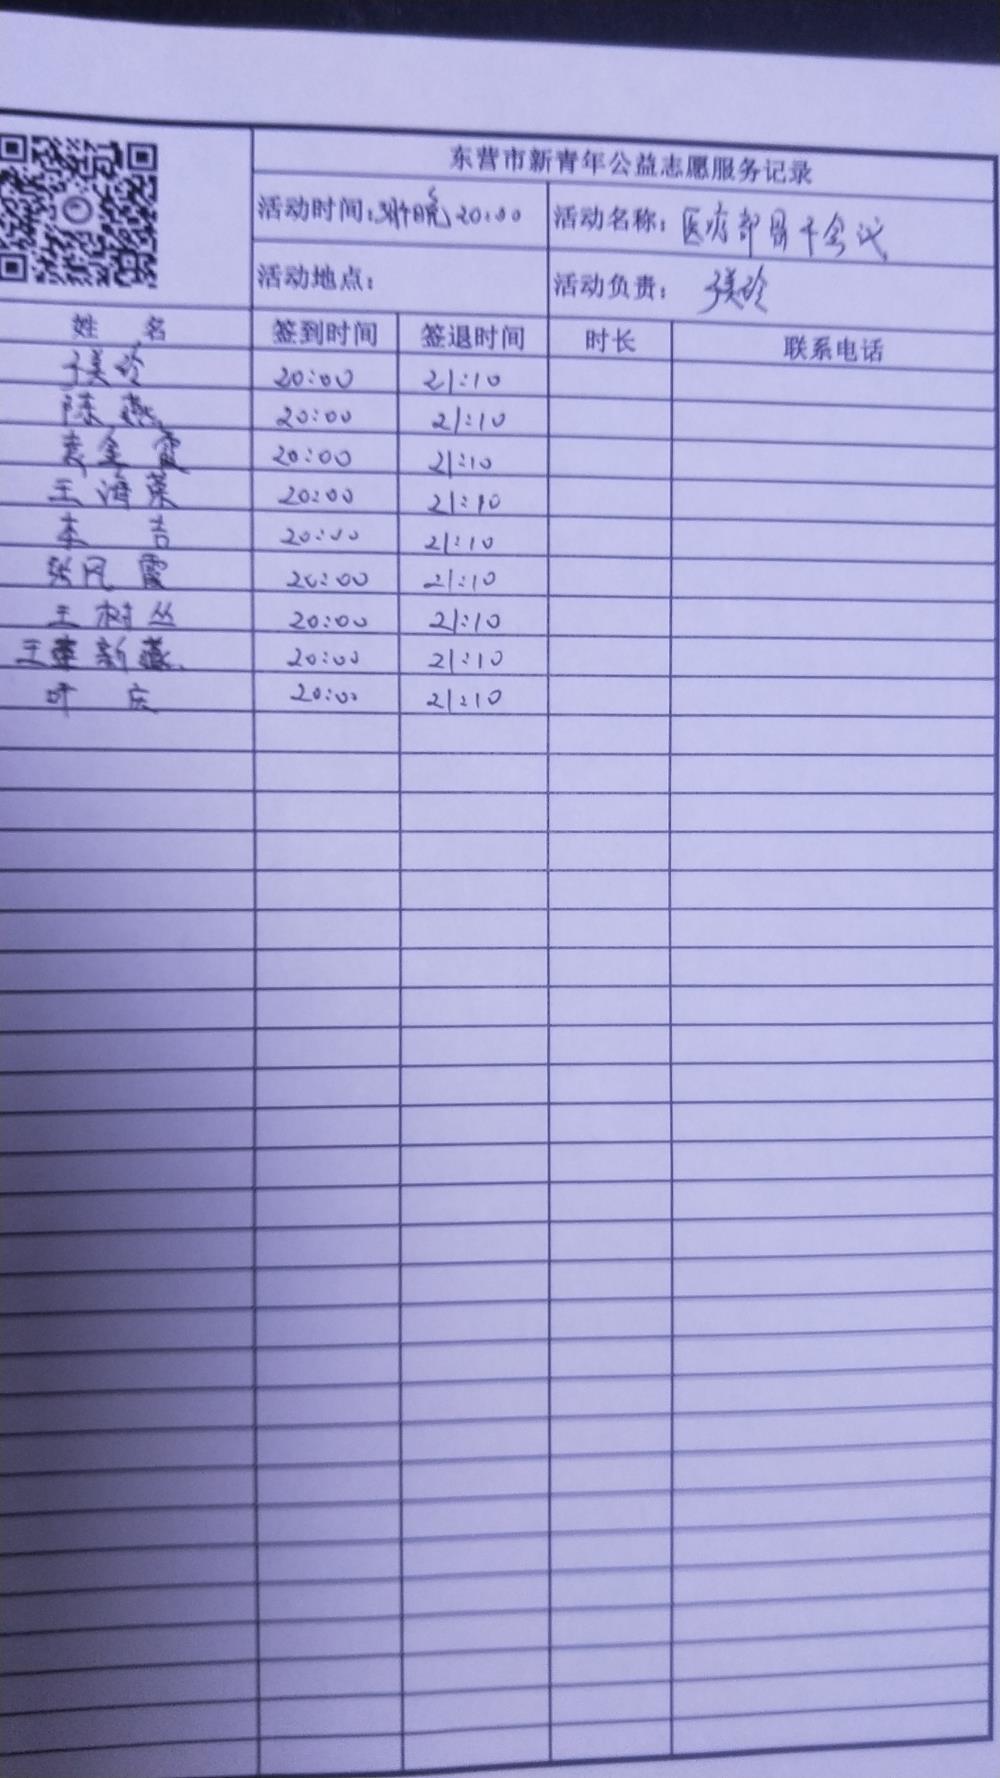 东营市新青年公益志愿服务记录
活动时间: 晚20:00 活动名称: 医疗部骨干会议
活动地点: 活动负责: 于美玲
姓 名 签到时间 签退时间 时长 联系电话
于美玲 20:00 21:10
陈燕 20:00 21:10
袁金霞 20:00 21:10
王海荣 20:00 21:10
李吉 20:00 21:10
张凤霞 20:00 21:10
王树丛 20:00 21:10
王 新燕 20:00 21:10
叶庆 20:00 21:10